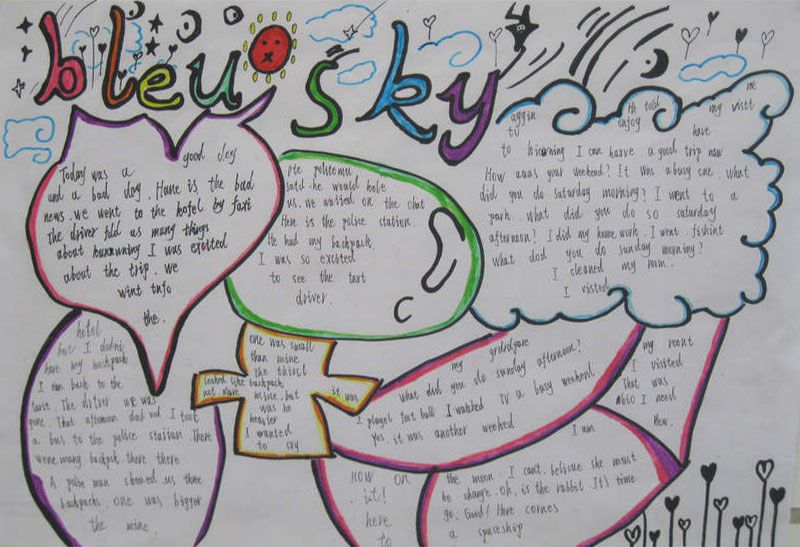 bleu sky
Today was a good day
and a bad day. Hane is the bad
news. we went to the hotel by faxi
The driver told as many things
about hanannning I was excited
about the trip. we
wint tnfo
the.
hotel
But I didnt
have my backpack
I ran back to the
taxit. The driver was
gone. That afternoon dad and I toot
a bus to the police station. There
were many backpack there there
A polie man showed us three
backpacks. one was bigger
the mine
one was small
than mine
the thirel
looked like backpack
not have mine. but it was
was he
heavier
I wanted
to cry
pte policeman
said he would help
us. we waited on the chat
Here is the police station.
He had my backpack
I was so excited
to see the taxt
driver.
aggin He told my visit me
to enjoy have
to hiarning. I can haave a good trip now
How aaas your weekend? It was a busy one. what
did you do saturday morning? I went to a
park. what did you do so saturday
afternoon? I did my home work. I went fishint
what did you do sunday morning?
I cleaned my rom.
I visted
my grdrdpare
what did you do sunday afternoon?
I playet foot ball I watched TV a busy weekend
Yes. it was another weeked
my room
I visited
That was
I need
New.
I am
now on
it!
here
to
the moon. I can't. belicue she must
be change. oh, is the rabbit. It's time
go. Good! Here comes
a spaceship